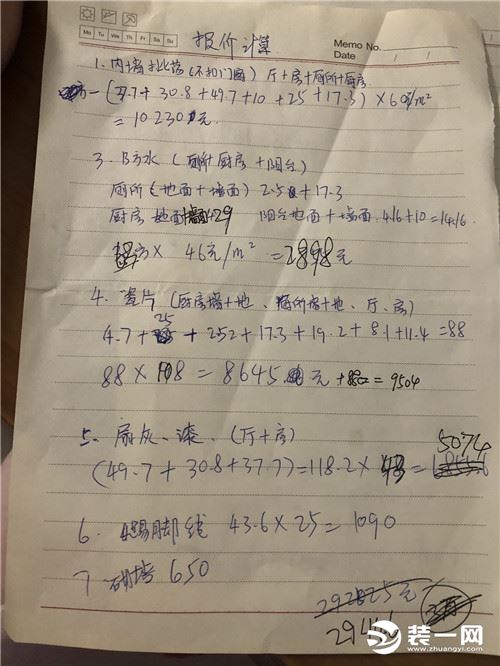 Mo Tu We Th Fr Sa Su
报价计算
Memo No.
Date / /
1、内墙批荡(不扣门窗) 厅+房+厕所+厨房
(37.7+30.8+49.7+10+25+17.3)×60元/m²
=10230元
3、防水(厕所厨房+阳台)
厕所(地面+墙面) 25+17.3
厨房 地面+墙面 4.29 阳台地面+墙面 4.16+10=14.16
×46元/m²=2898元
4、瓷片(厨房墙+地、厕所墙+地、厅、房)
4.7+25+252+17.3+19.2+8.1+11.4=88
88×108=8645元+880=9504
5、扇灰、漆、(厅+房)
(49.7+30.8+37.7)=118.2×43=5074
6、踢脚线 43.6×25=1090
7、砌墙 650
元
装一网
www.zhuangyi.com